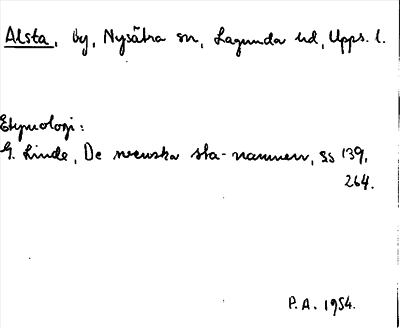 Alsta, by, Nysätra sn, Lagunda hd, Upps. l.
Etymologi:
G. Linde, De svenska sta-namnen, ss 139,
264.
P.A. 1954.